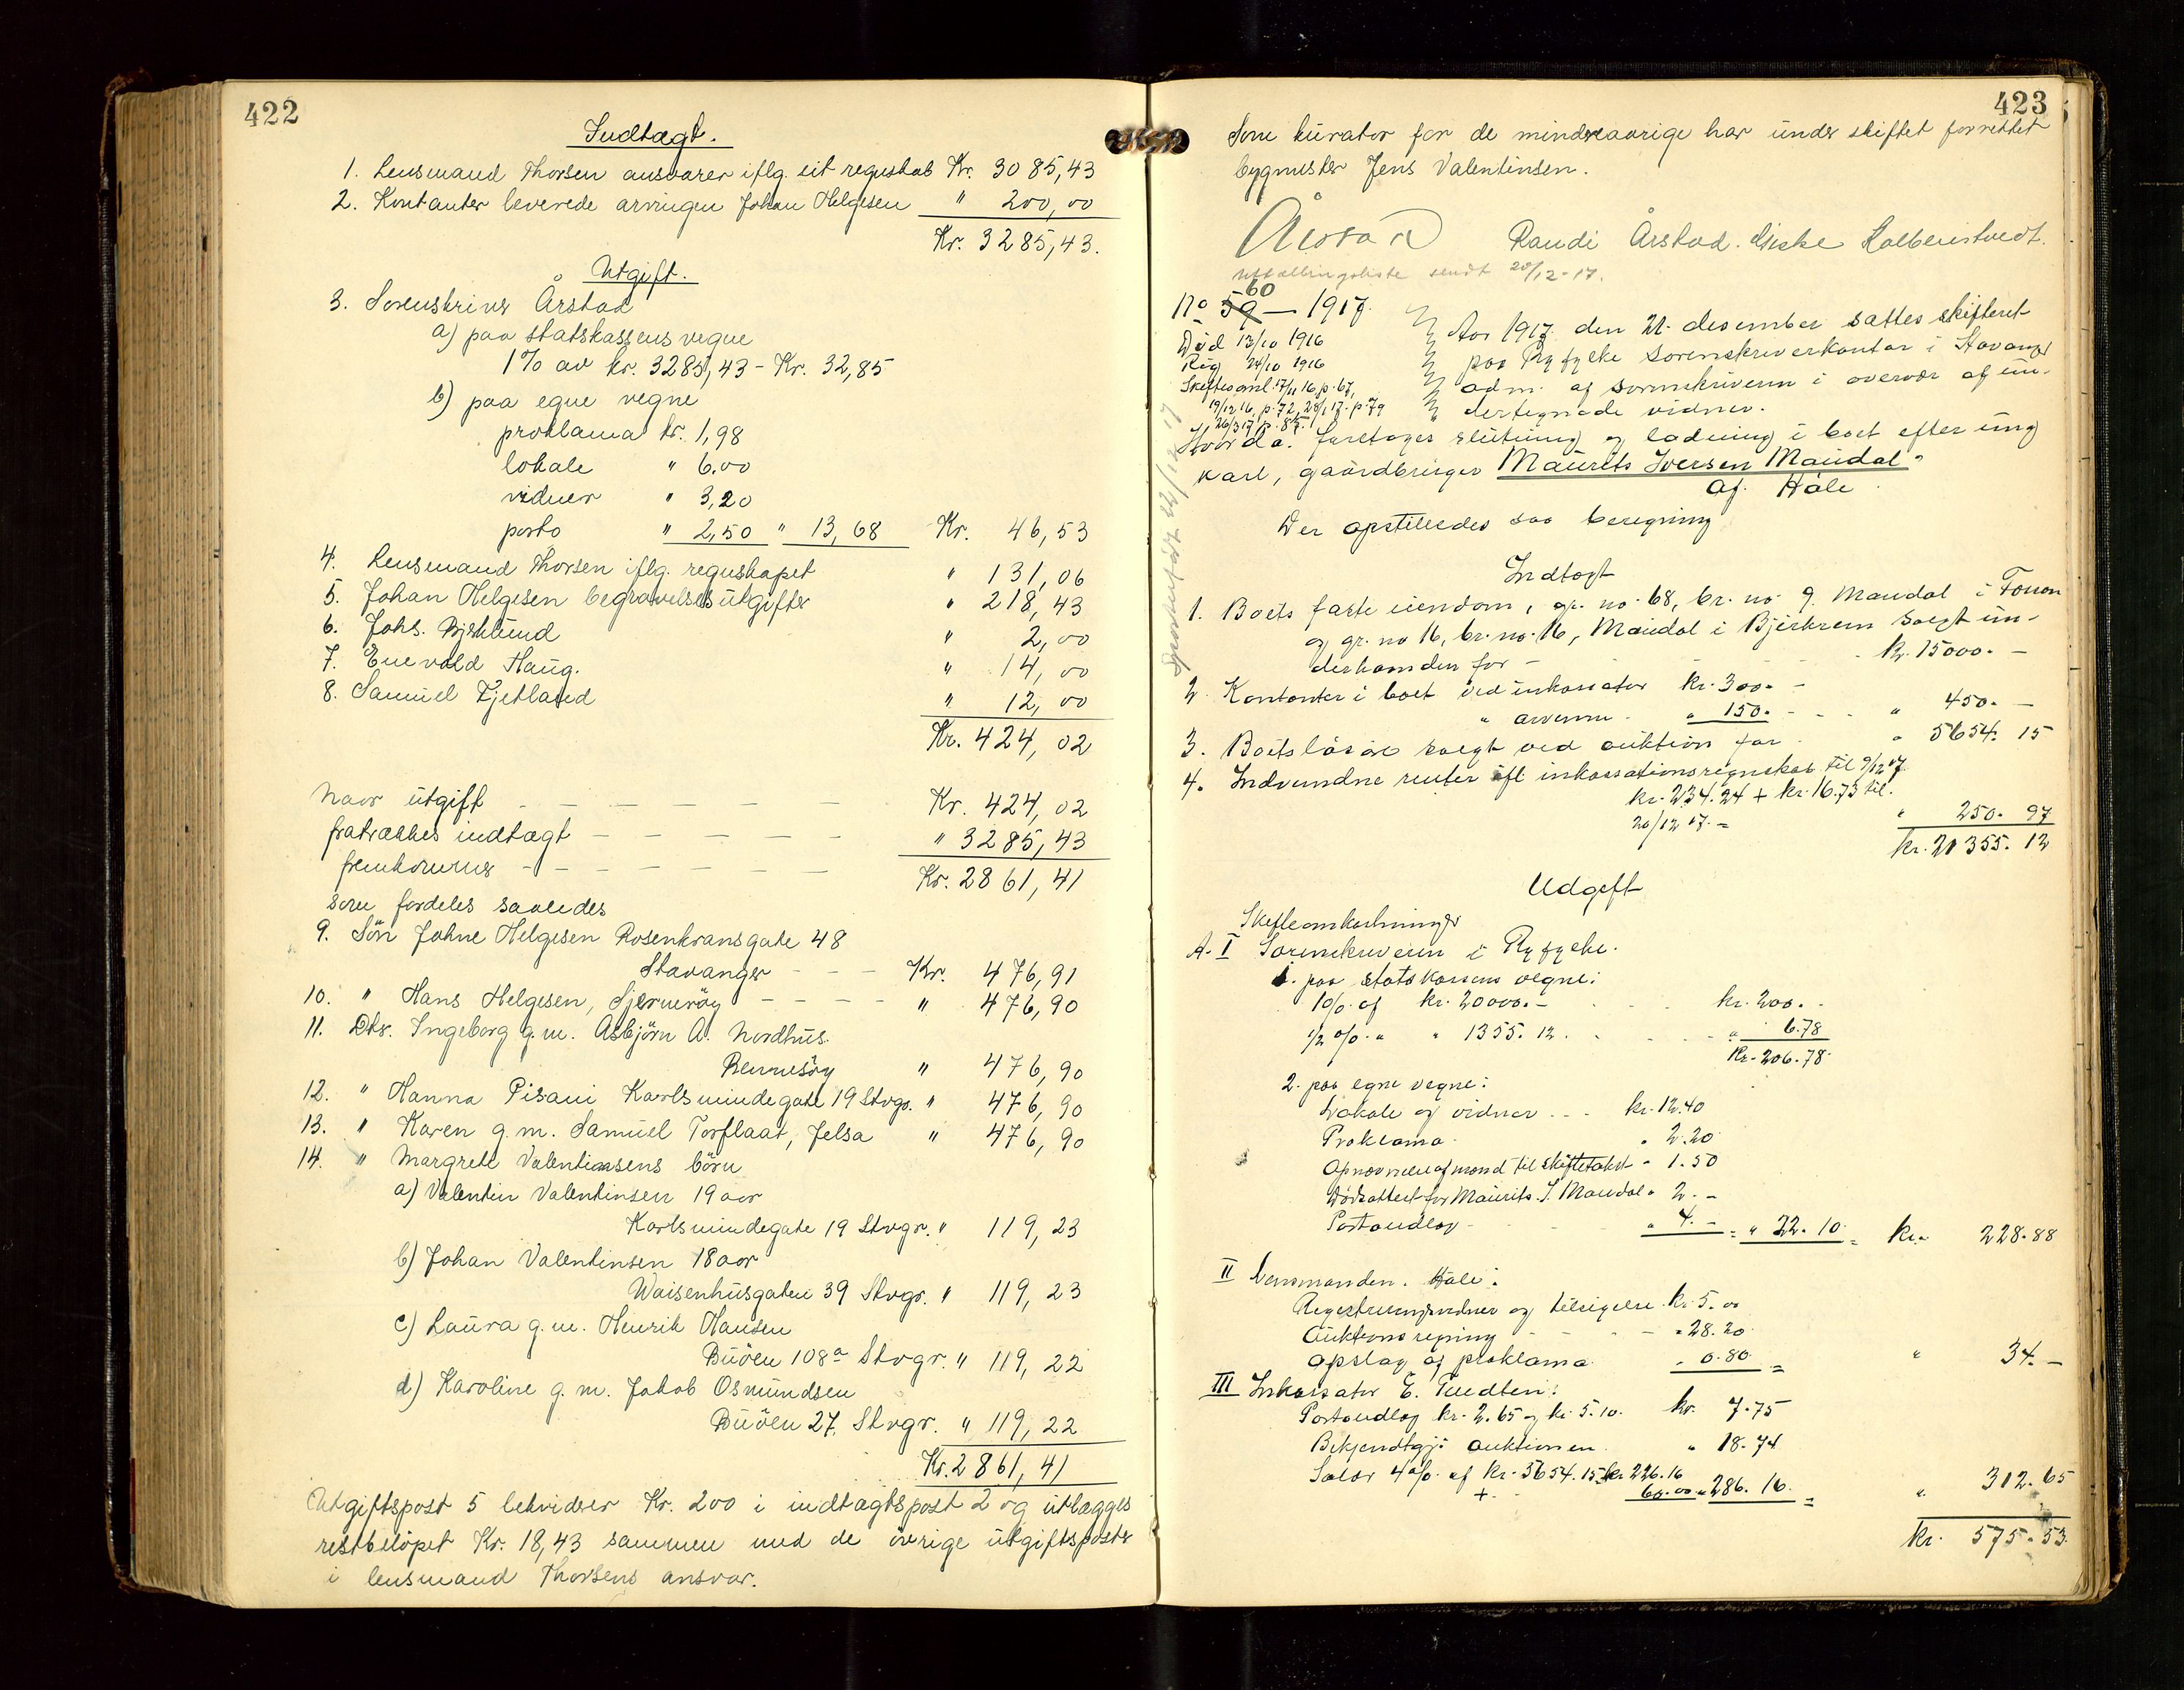 422
Indtægt.
1. Lensmand Thorsen ansvarer iflg. sit regnskab Kr. 3085,43
2. Kontanter leverede arvingen Johan Helgesen " 200,00
Kr. 3285,43.
Utgift.
3. Sorenskriver Årstad
a) paa statskassens vegne
1% av kr. 3285,43 - Kr. 32,85
b) paa egne vegne
proklama kr. 1,98
lokale " 6.00
vidner " 3,20
porto " 2,50 " 13,68 Kr. 46,53
4. Lensmand Thorsen iflg. regnskapet " 131,06
5. Johan Helgesen begravelsesutgifter " 218,43
6. Johs. Bjelland " 2,00
7. Enevald Haug. " 14,00
8. Samuel Tjetland " 12,00
Kr. 424,02
Naar utgift - - - - - - Kr. 424,02
fratrækkes indtægt - - - - - " 3285,43
fremkommer - - - - - - Kr. 2861,41
som fordeles saaledes
9. Sön Johne Helgesen Rosenkransgate 48
Stavanger - - - Kr. 476,91
10. " Hans Helgesen, Sjernerøy - - - - " 476,90
11. Dtr. Ingeborg g.m. Asbjörn A. Nordhus.
Rennesöy " 476,90
12. " Hanna Pisani Karlsmindegate 19 Stvgr. " 476,90
13. " Karen g.m. Samuel Torflaat, Jelsa " 476,90
14. " Margrete Valentinsens börn
a) Valentin Valentinsen 19 aar
Karlsmindegate 19 Stvgr. " 119,23
b) Johan Valentinsen 18 aar
Waisenhusgaten 39 Stvgr. " 119,23
c) Laura g.m. Henrik Hansen
Buöen 108a Stvgr. " 119,22
d) Karoline g.m. Jakob Osmundsen
Buöen 27, Stvgr. " 119,22
Kr. 2861,41
Utgiftspost 5 lekvidser Kr. 200 i indtægtspost 2 og utlægges
restbelöpet Kr. 18,43 sammen med de övrige utgiftsposter
i lensmand Thorsens ansvar.
423
Som kurator for de mindreaarige har under skiftet forrettet
bygmester Jens Valentinsen.
Årstad Randi Årstad. Giske Kolbenstvedt.
utlodningsliste sendt 20/12-17.
60
No 59 - 1917.
Död 13/10 1916
Reg 24/10 1916
Skiftesaml. 17/11 16 p. 67,
19/12 16. p. 72, 23/1 17. p 79
26/3 17 p. 85.
Aar 1917 den 21. desember sattes skifteret
paa Ryfylke sorenskriverkontor i Stavanger
adm. af sorenskriveren i overvær af un-
dertegnede vidner.
Hvorda: foretoges slutning og lodning i boet efter ung
karl, gaardbruger Maurits Iversen Maudal.
af. Håle
Der opstilledes saa beregning
Indtægt
1. Boets faste eiendom, gr. no. 68, br. no. 9. Maudal i Forsan
og gr. no 16, br. no. 16, Maudal i Bjerkrem solgt un-
derhaanden for - kr. 15000. -
2. Kontanter i boet ved inkassator kr. 300. -
" arvinne - " 150. - " 450. -
3. Boets lösöre solgt ved auktion for - " 5654. 15
4. Indvundne renter ifl. inkassationsregnskab til 9/12 17
kr. 234.24 + kr. 16.73 til.
20/12 17. - " 250. 97
kr. 21355. 12
Udgift
Skifteomkostninger
A. I Sorenskriveren i Ryfylke.
1. paa statskassens vegne:
1 0/0. af kr. 20000. - kr. 200. -
1/2 0/0. " " 1355. 12. - " 6.78
kr. 206.78.
2. paa egne vegne:
Lokale og vidner - - - kr. 12.40
Proklama - " 2.20
Opnævnelse af mænd til skiftetakst " 1.50
Dödsattest for Maurits I. Maudal " 2. -
Portoudlæg - " 4. - = " 22. 10 = kr. 228.88
II Lensmanden. Håle:
Registreringsvidner og tilsigelse kr. 5.00
Auktionsregning - - " 28.20
Opslag af proklama. " 0.80 = " 34. -
III Inkassator E. Tuedten:
Portoudlæg kr. 2.65 og kr. 5.10. kr. 7.75
Bekjendtgj: auktionen " 18.74
Salær 4 0/0. af kr. 5654.15 kr. 226.16
+ 60.00 " 286. 16. = " 312.65
kr. 575.53.